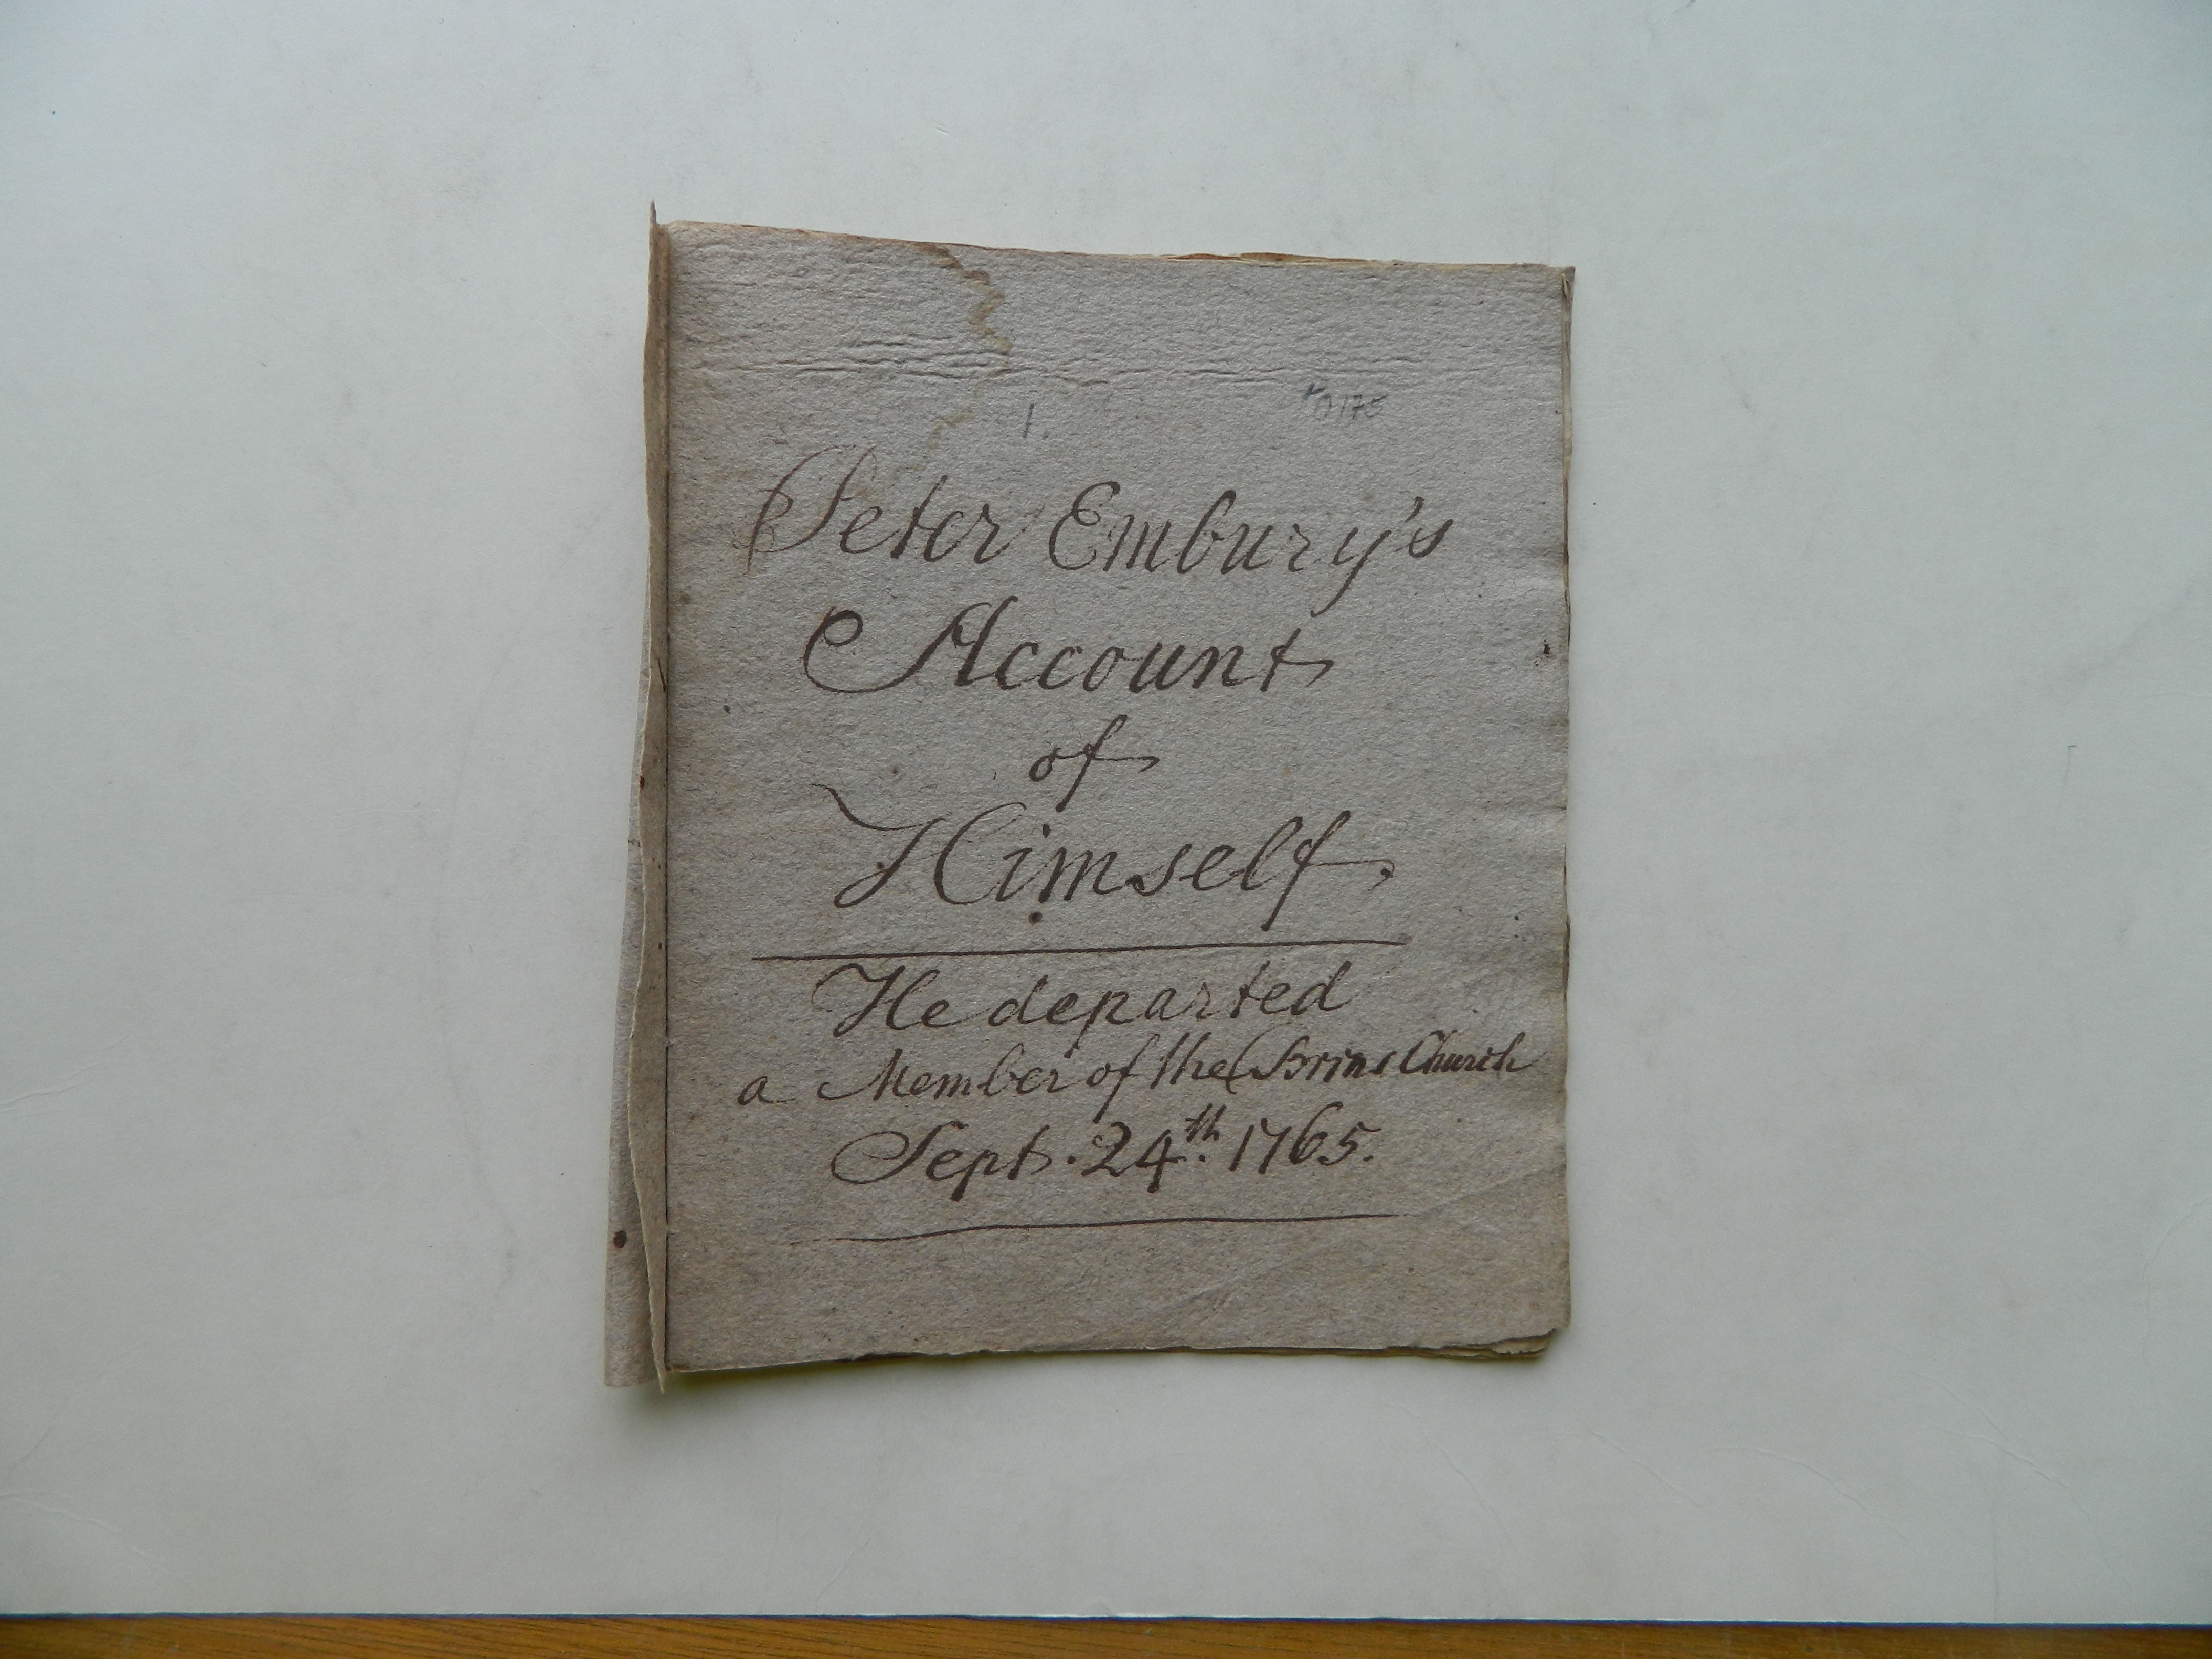 1.
Peter Embury's
Account
of
Himself.
He departed
a Member of the Brins Church
Sept. 24th. 1765.